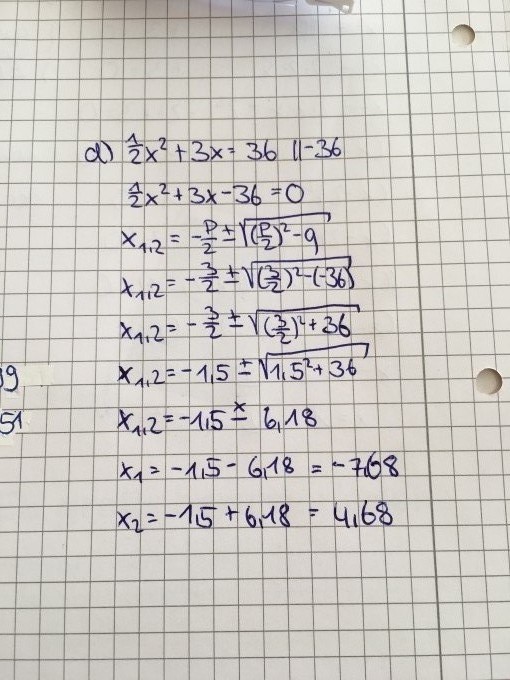 d) 1/2x² + 3x = 36 || -36
1/2x² + 3x - 36 = 0
x1,2 = -p/2 ± √((p/2)² - q)
x1,2 = -3/2 ± √((3/2)² - (-36))
x1,2 = -3/2 ± √((3/2)² + 36)
39
x1,2 = -1,5 ± √(1,5² + 36)
51
x1,2 = -1,5 ± 6,18
x1 = -1,5 - 6,18 = -7,68
x2 = -1,5 + 6,18 = 4,68